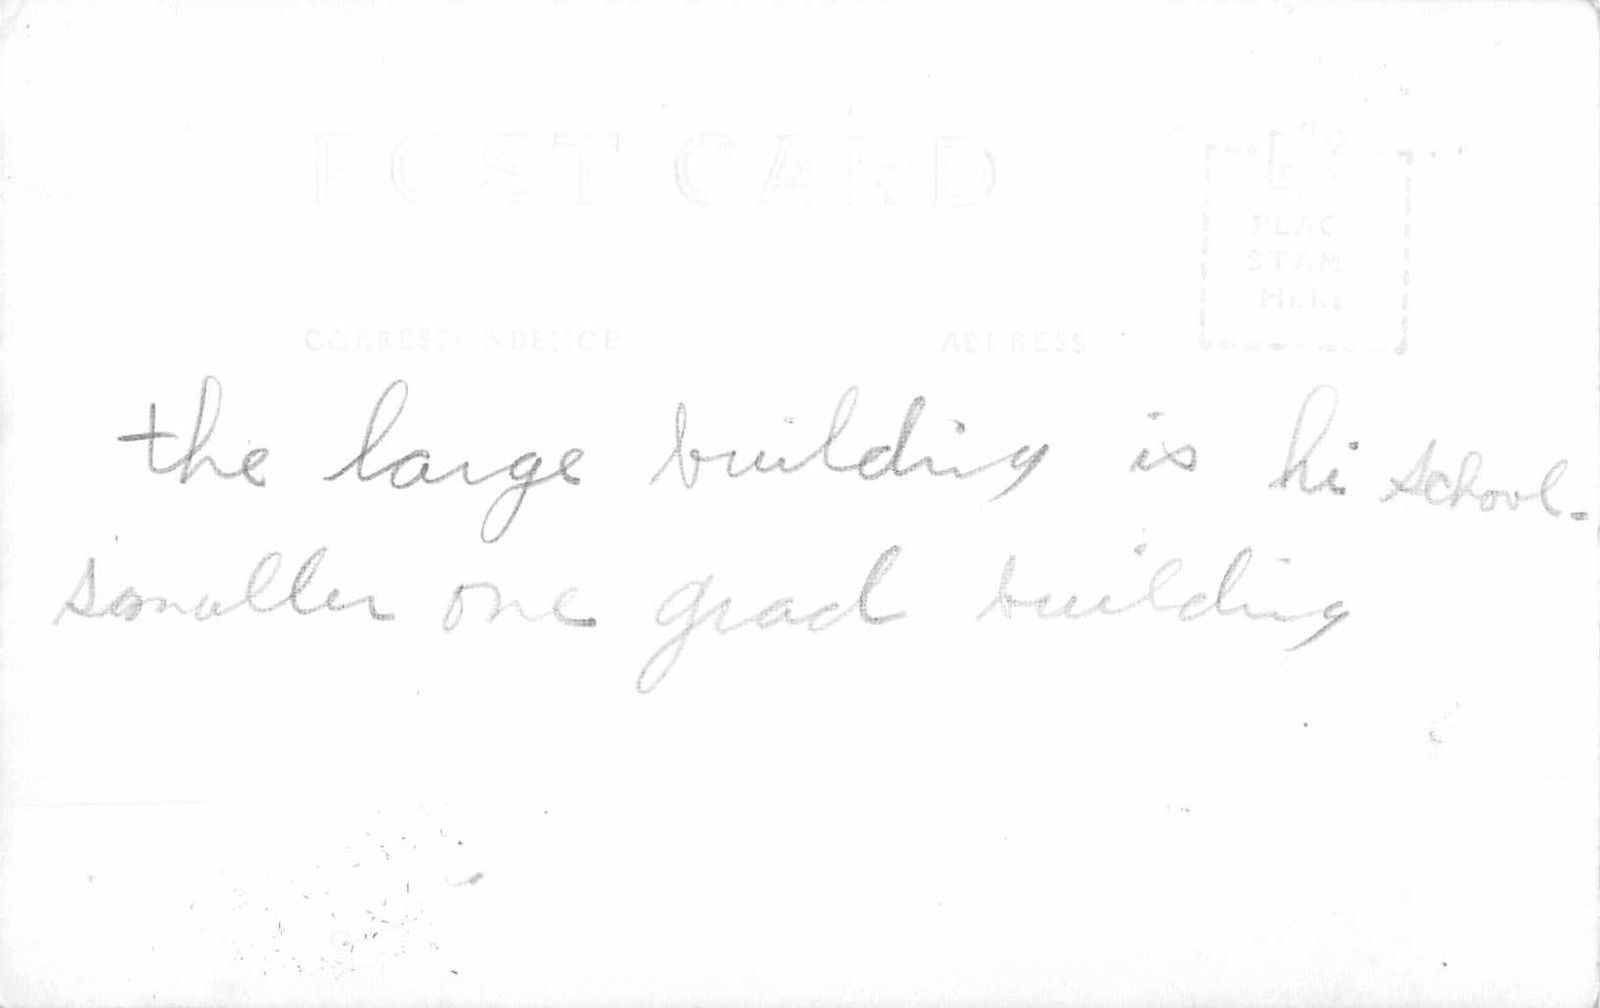 POST CARD
PLAC
STAM
HERE
CORRESPONDENCE ADDRESS
the large building is hi school.
smaller one grad building